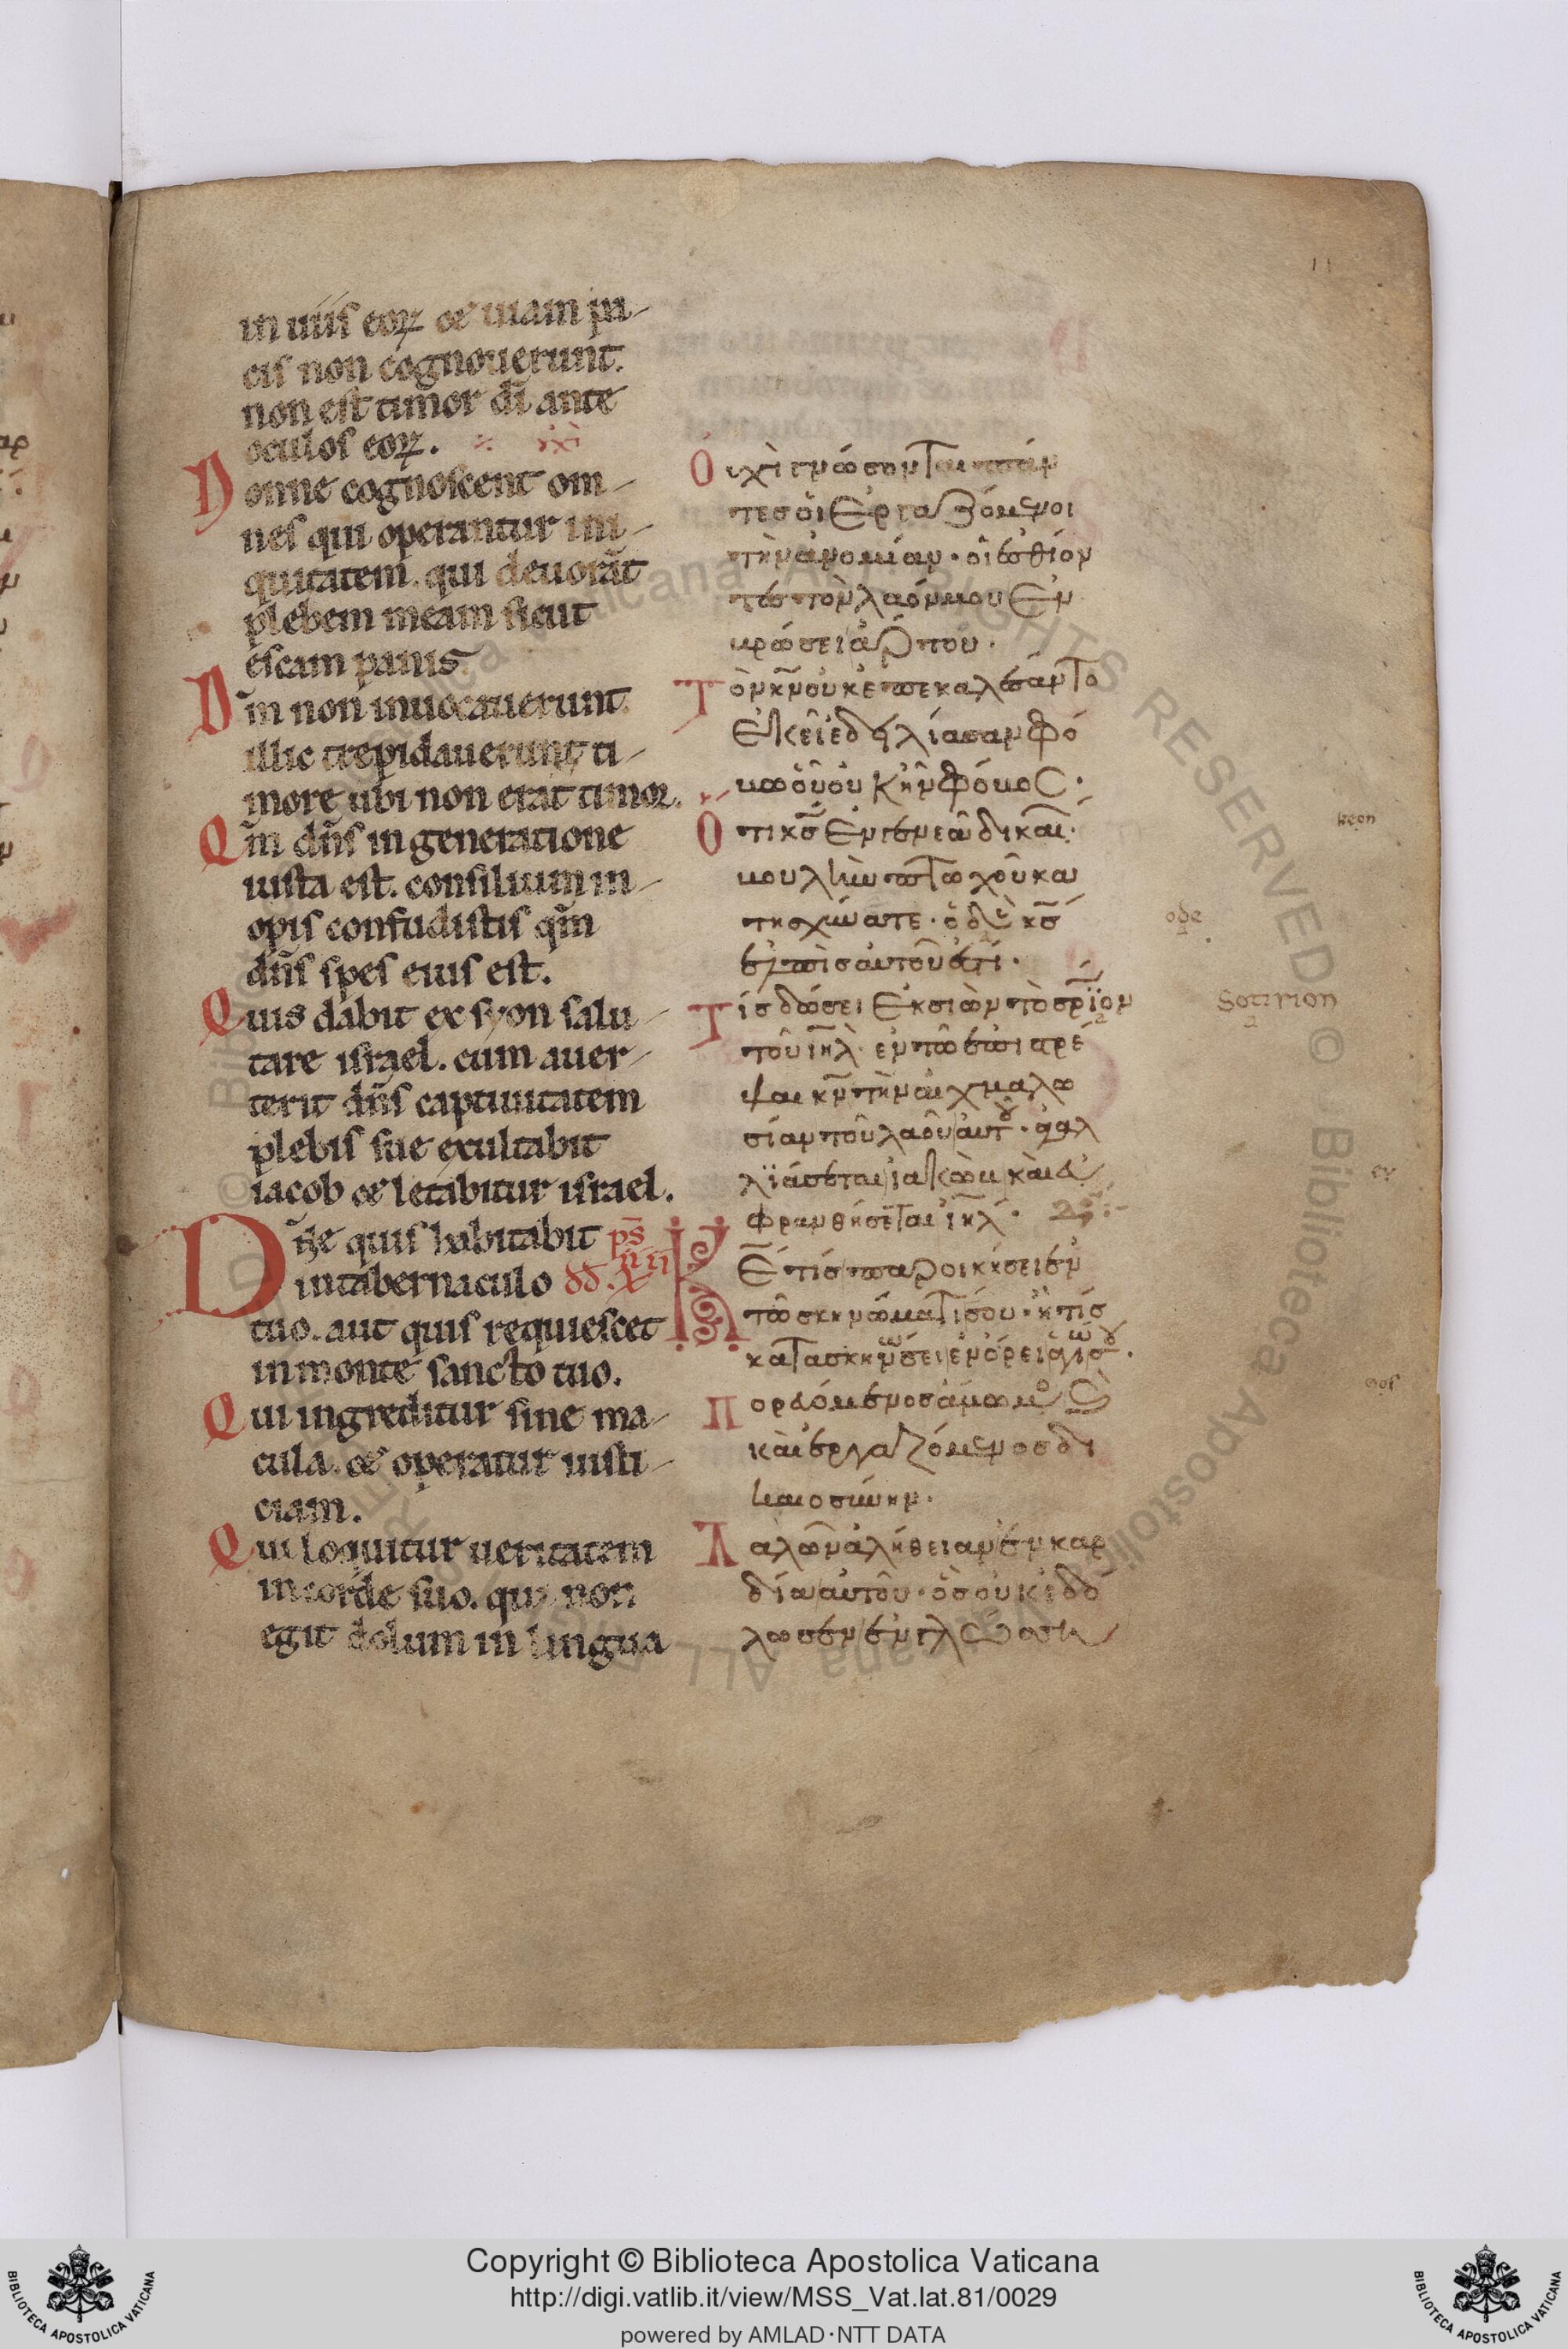 in uiis eoꝝ & uiam pa-
cis non cognouerunt.
non est timor dī ante
oculos eoꝝ.
Nonne cognoscent om-
nes qui operantur ini-
quitatem. qui deuorāt
plebem meam sicut
escam panis
Dn̄m non inuocauerunt.
illic trepidauerunt ti-
more ubi non erat timor.
Qm̄ dn̄s in generatione
iusta est. consilium in-
opis confudistis qm̄
dn̄s spes eius est.
Quis dabit ex syon salu-
tare israel. cum auer-
terit dn̄s captiuitatem
plebis sue exultabit
iacob & letabitur israel.
Dn̄e quis habitabit ps̄
in tabernaculo dd. xiiii
tuo. aut quis requiescet
in monte sancto tuo.
Qui ingreditur sine ma-
cula. & operatur iusti-
ciam.
Qui loquitur ueritatem
in corde suo. qui non
egit dolum in lingua
Ὀυχὶ γνώσονται πάν
τες ὁι ἐργαζόμενοι
τὴν ἀνομίαν· ὁι ἐσθίον
τες τὸν λαόν μου ἐν
βρώσει ἄρτου·
Τὸν κν̄ οὐκ ἐπεκαλέσαντο
ἐκεῖ ἐδειλίασαν φό
βω οὗ οὐκ ἦν φόβος·
Ὅτι κς̄ ἐν γενεᾶ δικαί
βουλὴν πτωχοῦ κα
τησχύνατε· ὁ δὲ κς̄
ἐλπὶς αὐτοῦ ἐστί·
Τίς δώσει ἐκ σιὼν τὸ σρ̄ϊον
τοῦ ιη̄λ· ἐν τῶ ἐπιστρέ
ψαι κν̄ τὴν αἰχμαλω
σίαν τοῦ λαοῦ αὐτου· ἀγαλ
λϊάσεται ἰακὼβ κὰι ἐυ
φρανθήσεται ιη̄λ·
Κε̄ τίς παροικήσει ἐν
τῶ σκηνώματί σου· ἢ τίς
κατασκηνώσει ἐν ὄρει ἁγίω σου·
Πορευόμενος ἄμωμος
κὰι ἐργαζόμενος δι
καιοσύνην·
Λαλῶν ἀλήθειαν ἐν καρ
δία αὐτοῦ· ὃς οὐκ ἐδό
λωσεν ἐν γλώσση
11
keon
ode
Sotirion
ey
oos
Copyright © Biblioteca Apostolica Vaticana
http://digi.vatlib.it/view/MSS_Vat.lat.81/0029
powered by AMLAD·NTT DATA
BIBLIOTECA APOSTOLICA VATICANA
BIBLIOTECA APOSTOLICA VATICANA